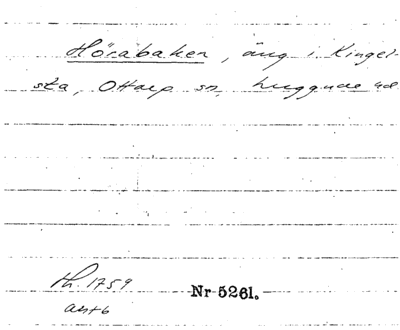 Hörabaken, äng i Kingel-
sta, Ottarp sn, huggude
th. 1759
Nr 5261.